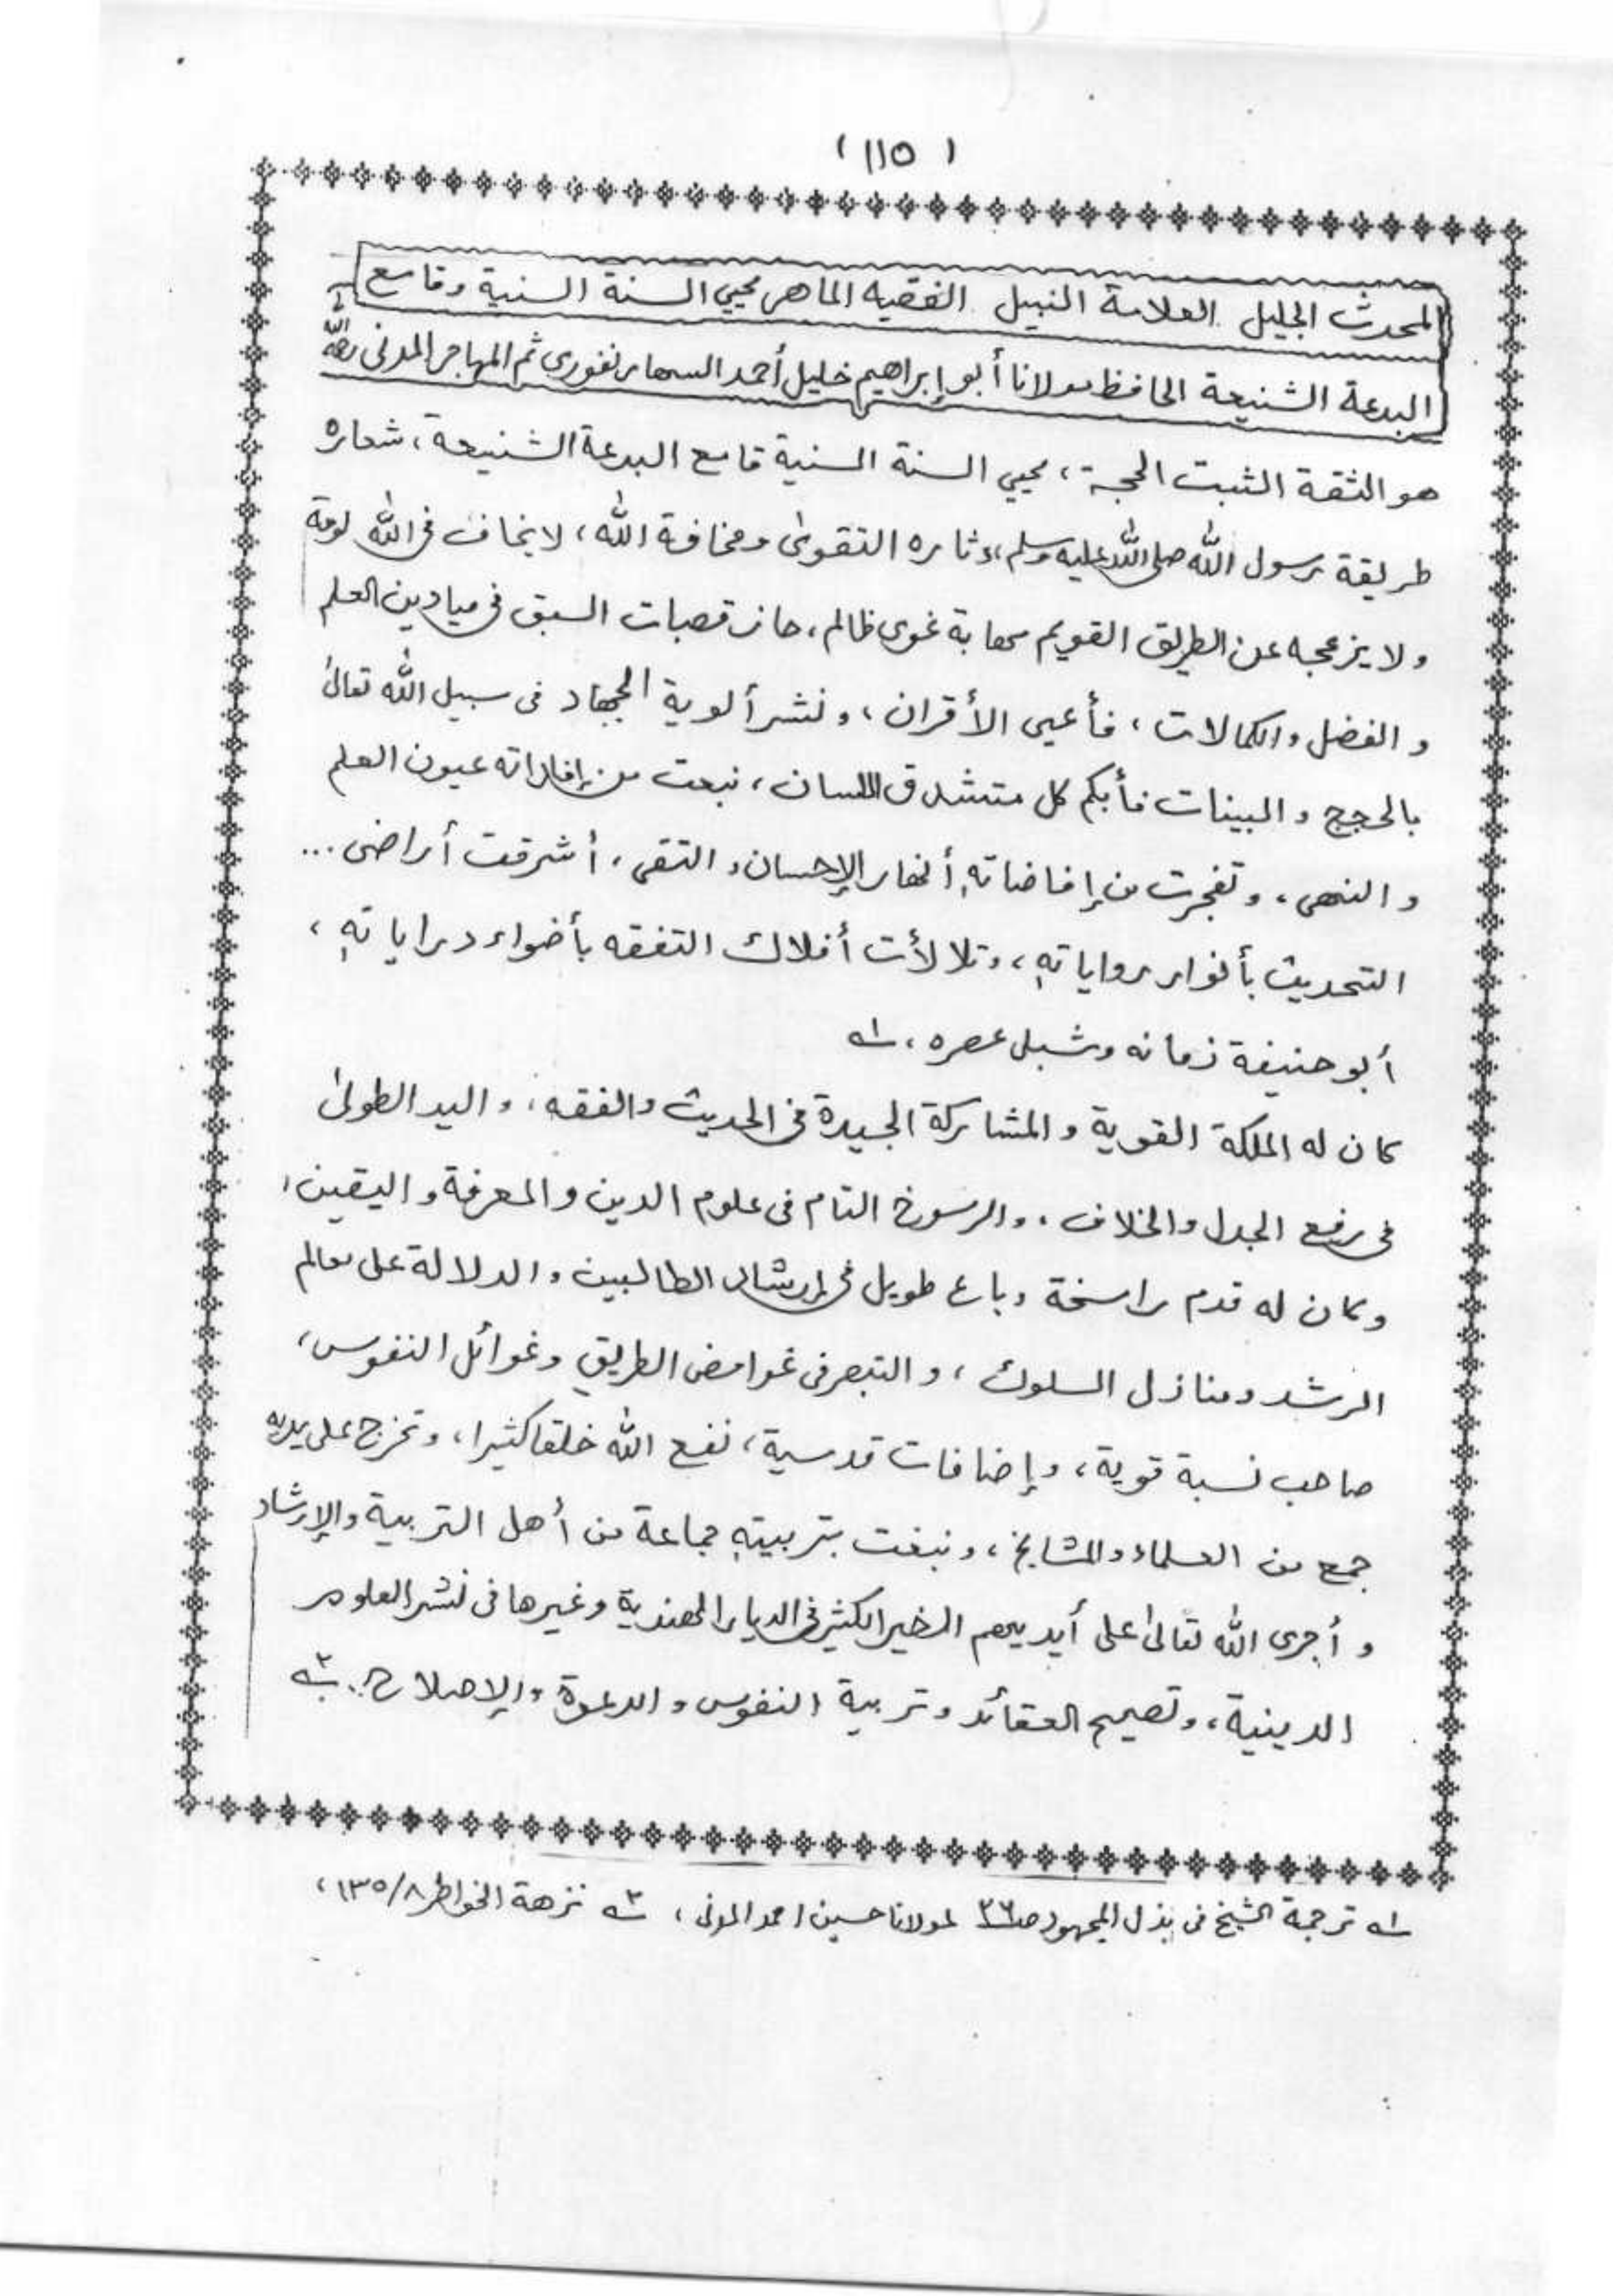 ( ١١٥ )
المحدث الجليل العلامة النبيل الفقيه الماهر محيي السنة السنية وقامع
البدعة الشنيعة الحافظ مولانا أبو إبراهيم خليل أحمد السهارنفوري ثم المهاجر المدنى رحمه الله
هو الثقة الثبت الحجة، محيي السنة السنية قامع البدعة الشنيعة، شعاره
طريقة رسول الله صلى الله عليه وسلم، دثاره التقوىٰ ومخافة الله، لا يخاف فى الله لومة
ولا يزعجه عن الطريق القويم مهابة غوى ظالم، حاز قصبات السبق فى ميادين العلم
و الفضل والكمالات، فأعيى الأقران، ونشر ألوية الجهاد فى سبيل الله تعالىٰ
بالحجج و البينات فأبكم كل متشدق اللسان، نبعت من إفاداته عيون العلم
و النهى، وتفجرت من إفاضاته أنهار الإحسان و التقى، أشرقت أراضى ...
التحديث بأنوار رواياتهٖ، وتلالأت أفلاك التفقه بأضواء دراياتهٖ،
أبو حنيفة زمانه وشبلى عصره، ١ه
كان له الملكة القوية و المشاركة الجيدة فى الحديث والفقه، و اليد الطولىٰ
فى رفع الجدل والخلاف، والرسوخ التام فى علوم الدين و المعرفة و اليقين،
وكان له قدم راسخة وباع طويل فى إرشاد الطالبين و الدلالة على معالم
الرشد ومنازل السلوك، و التبصر فى غوامض الطريق وغوائل النفوس،
صاحب نسبة قوية، وإضافات قدسية، نفع الله خلقا كثيرا، وتخرج على يديه
جمع من العلماء والمشايخ، ونبغت بتربيتهٖ جماعة من أهل التربية والإرشاد
و أجرى الله تعالىٰ على أيديهم الخير الكثير فى الديار الهندية وغيرها فى نشر العلوم
الدينية، وتصحيح العقائد وتربية النفوس و الدعوة والإصلاح. ٢ه
١ه ترجمة الشيخ فى بذل المجهود صـ٣٦ لمولانا حسين احمد المدنى، ٢ه نزهة الخواطر ٨/١٣٥،